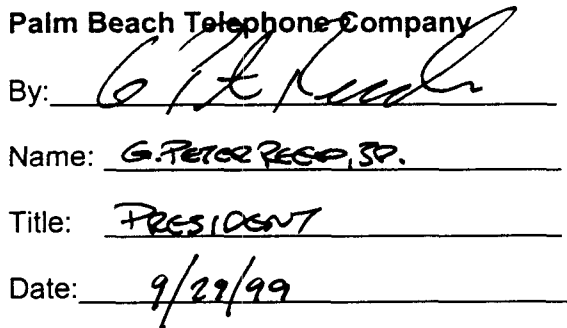 Palm Beach Telephone Company
By: G Pete Reed
Name: G. PETER REED, SR.
Title: PRESIDENT
Date: 9/29/99